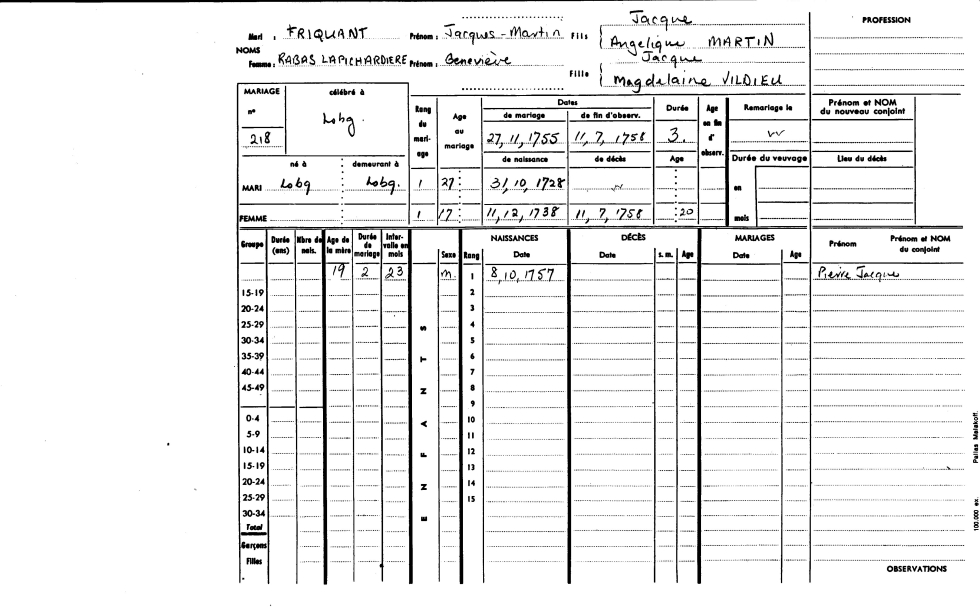 Mari : FRIQUANT Prénom : Jacques-Martin Fils { Jacque
Angelique MARTIN
PROFESSION
NOMS
Femme : RABAS LAPICHARDIERE Prénom : Geneviève Fille { Jacque
Magdelaine VILDIEU
MARIAGE célébré à
n° 218 Lobg.
Rang du mariage
Age au mariage
Dates
de mariage de fin d'observ.
27, 11, 1755 11, 7, 1758
Durée
3.
Age en fin d'observ.
Remariage le
Prénom et NOM du nouveau conjoint
né à demeurant à
de naissance de décès Age
Durée du veuvage
Lieu du décès
MARI Lobg Lobg. 1 27 31, 10, 1728
en
FEMME 1 17 11, 12, 1738 11, 7, 1758 20
mois
Groupe Durée (ans) Nbre de nais. Age de la mère Durée de mariage Intervalle en mois
ENFANTS
Sexe Rang
NAISSANCES
Date
DÉCÈS
Date s. m. Age
MARIAGES
Date Age
Prénom Prénom et NOM du conjoint
19 2 23 m. 1 8, 10, 1757 Pierre Jacque
15-19 2
20-24 3
25-29 4
30-34 5
35-39 6
40-44 7
45-49 8
9
0-4 10
5-9 11
10-14 12
15-19 13
20-24 14
25-29 15
30-34
Total
Garçons
Filles
OBSERVATIONS
100.000 ex. Pallas Malakoff.